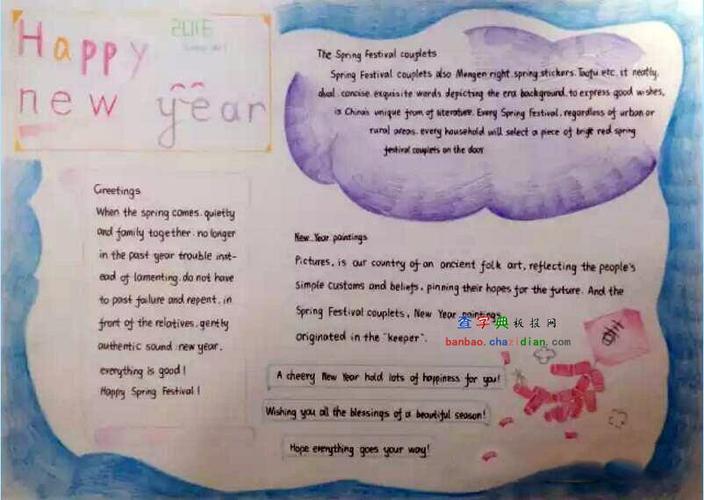 Happy
2016
new year
The Spring Festival couplets
Spring Festival couplets also Mengen right, spring, stickers, Taofu etc, it neatly,
dual, concise, exquisite words depicting the era background, to express good wishes,
is China's unique from of literature. Every Spring Festival, regardless of urban or
rural areas, every household will select a piece of bright red spring
festival couplets on the door
Greetings
When the spring comes, quietly
and family together, no longer
in the past year trouble inst-
ead of lamenting, do not have
to past failure and repent, in
front of the relatives, gently
authentic sound: new year,
everything is good!
Happy Spring Festival!
New Year paintings
Pictures, is our country of an ancient folk art, reflecting the people's
simple customs and beliefs, pinning their hopes for the future. And the
Spring Festival couplets, New Year paintings
originated in the "keeper".
查字典板报网
banbao.chazidian.com
A cheery New Year hold lots of happiness for you!
Wishing you all the blessings of a beautiful season!
Hope everything goes your way!